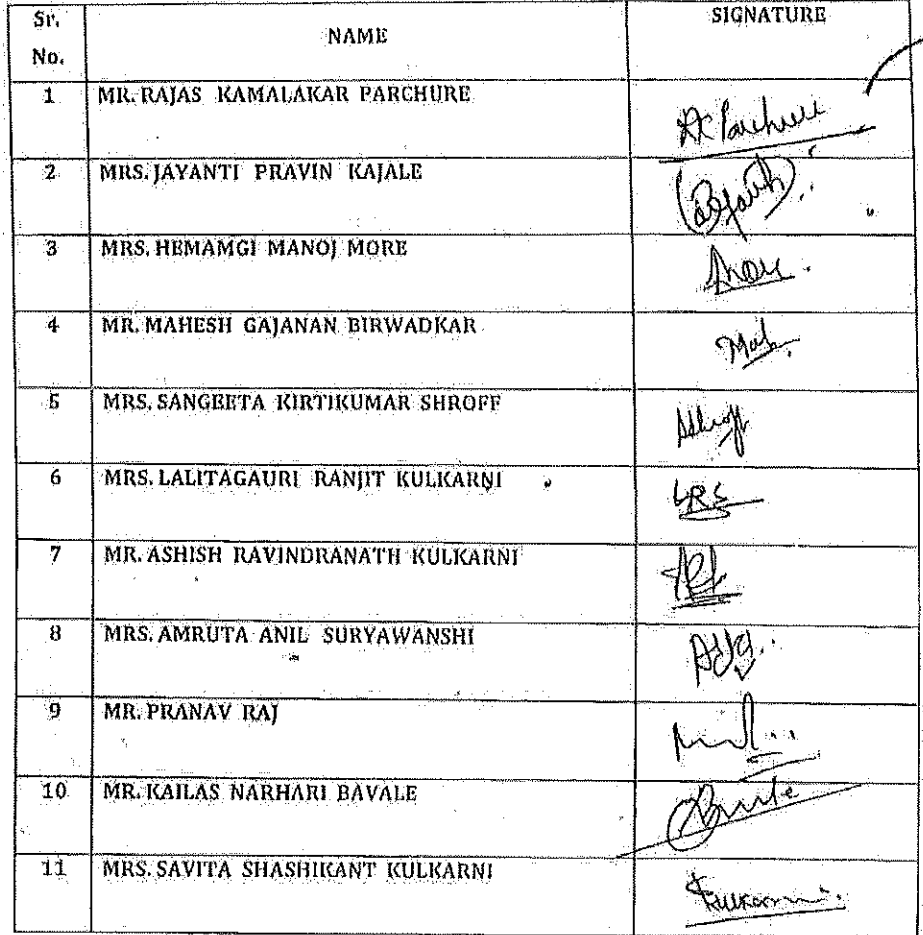 Sr. No. NAME SIGNATURE
1 MR. RAJAS KAMALAKAR PARCHURE RK Parchure
2 MRS. JAYANTI PRAVIN KAJALE
3 MRS. HEMAMGI MANOJ MORE
4 MR. MAHESH GAJANAN BIRWADKAR
5 MRS. SANGEETA KIRTIKUMAR SHROFF
6 MRS. LALITAGAURI RANJIT KULKARNI
7 MR. ASHISH RAVINDRANATH KULKARNI
8 MRS. AMRUTA ANIL SURYAWANSHI
9 MR. PRANAV RAJ
10 MR. KAILAS NARHARI BAVALE
11 MRS. SAVITA SHASHIKANT KULKARNI Kulkarni.